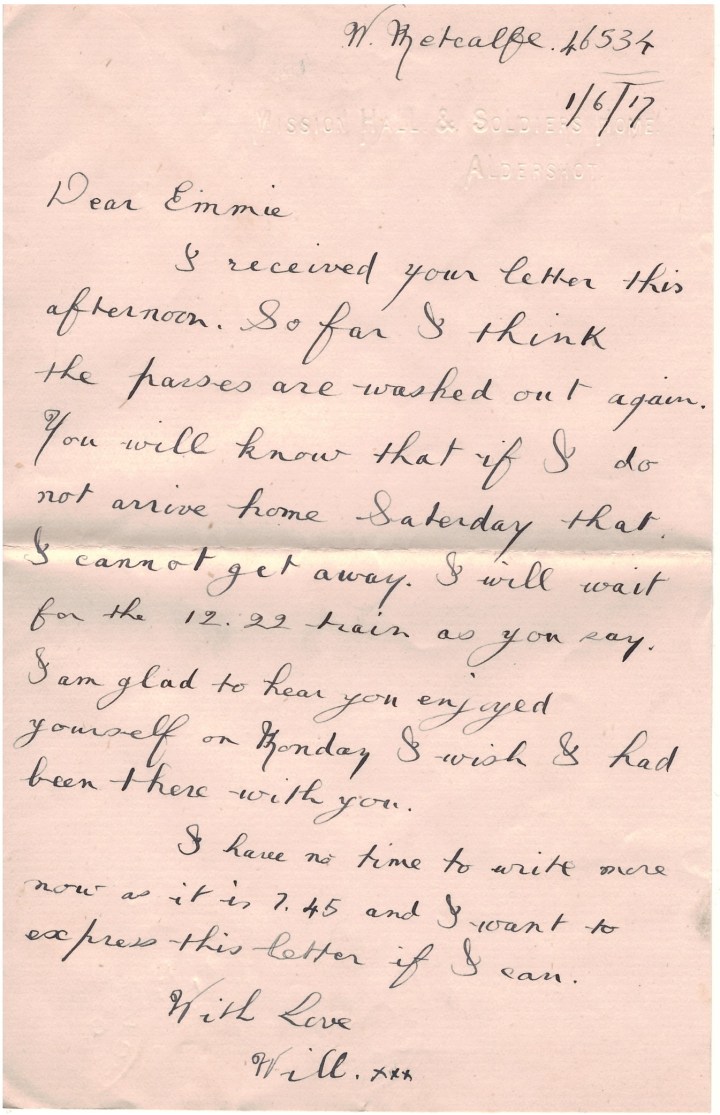 W. Metcalfe. 46534
1/6/17
MISSION HALL & SOLDIERS HOME
ALDERSHOT
Dear Emmie
I received your letter this
afternoon. So far I think
the passes are washed out again.
You will know that if I do
not arrive home Saterday that
I cannot get away. I will wait
for the 12.22 train as you say.
I am glad to hear you enjoyed
yourself on Monday I wish I had
been there with you.
I have no time to write more
now as it is 7.45 and I want to
express this letter if I can.
With Love
Will. xxx